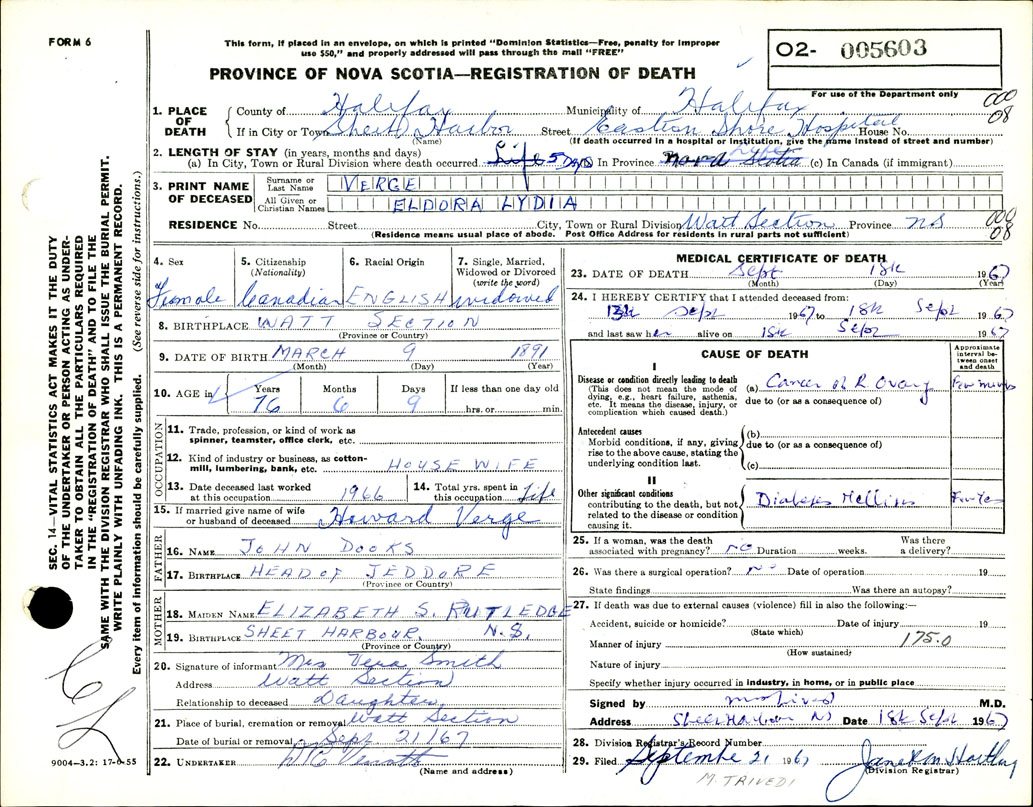 FORM 6
This form, if placed in an envelope, on which is printed "Dominion Statistics—Free, penalty for improper
use $50," and properly addressed will pass through the mail "FREE"
PROVINCE OF NOVA SCOTIA—REGISTRATION OF DEATH
O2- 005603
For use of the Department only
000
08
1. PLACE OF DEATH
County of Halifax Municipality of Halifax
If in City or Town Sheet Harbor Street Eastern Shore Hospital House No.
(Name) (If death occurred in a hospital or institution, give the name instead of street and number)
2. LENGTH OF STAY (in years, months and days)
(a) In City, Town or Rural Division where death occurred Life 5 Days (b) In Province Nova Scotia (c) In Canada (if immigrant)
3. PRINT NAME OF DECEASED
Surname or Last Name VERGE
All Given or Christian Names ELDORA LYDIA
RESIDENCE No. Street City, Town or Rural Division Watt Section Province NS
(Residence means usual place of abode. Post Office Address for residents in rural parts not sufficient)
000
08
SEC. 14—VITAL STATISTICS ACT MAKES IT THE DUTY
OF THE UNDERTAKER OR PERSON ACTING AS UNDER-
TAKER TO OBTAIN ALL THE PARTICULARS REQUIRED
IN THE "REGISTRATION OF DEATH" AND TO FILE THE
SAME WITH THE DIVISION REGISTRAR WHO SHALL ISSUE THE BURIAL PERMIT.
WRITE PLAINLY WITH UNFADING INK. THIS IS A PERMANENT RECORD.
Every item of information should be carefully supplied. (See reverse side for instructions.)
4. Sex Female
5. Citizenship (Nationality) Canadian
6. Racial Origin ENGLISH
7. Single, Married, Widowed or Divorced (write the word) widowed
8. BIRTHPLACE WATT SECTION
(Province or Country)
9. DATE OF BIRTH MARCH 9 1891
(Month) (Day) (Year)
10. AGE in Years 76 Months 6 Days 9 If less than one day old hrs. or min.
OCCUPATION
11. Trade, profession, or kind of work as
spinner, teamster, office clerk, etc.
12. Kind of industry or business, as cotton-
mill, lumbering, bank, etc. HOUSE WIFE
13. Date deceased last worked
at this occupation 1966
14. Total yrs. spent in
this occupation Life
15. If married give name of wife
or husband of deceased Howard Verge
FATHER
16. NAME JOHN DOOKS
17. BIRTHPLACE HEAD OF JEDDORE
(Province or Country)
MOTHER
18. MAIDEN NAME ELIZABETH S. RUTLEDGE
19. BIRTHPLACE SHEET HARBOUR, N.S.
(Province or Country)
20. Signature of informant Mrs Vera Smith
Address Watt Section
Relationship to deceased Daughter
21. Place of burial, cremation or removal Watt Section
Date of burial or removal Sept 21/67
22. UNDERTAKER
(Name and address)
9004—3.2: 17-6-55
MEDICAL CERTIFICATE OF DEATH
23. DATE OF DEATH Sept 18th 1967
(Month) (Day) (Year)
24. I HEREBY CERTIFY that I attended deceased from:
13th Sept 1967 to 18th Sept 1967
and last saw her alive on 18th Sept 1967
CAUSE OF DEATH
Approximate interval between onset and death
I
Disease or condition directly leading to death
(This does not mean the mode of
dying, e.g., heart failure, asthenia,
etc. It means the disease, injury, or
complication which caused death.)
(a) Cancer of R Ovary
due to (or as a consequence of)
Antecedent causes
Morbid conditions, if any, giving
rise to the above cause, stating the
underlying condition last.
(b)
due to (or as a consequence of)
(c)
II
Other significant conditions
contributing to the death, but not
related to the disease or condition
causing it.
Diabetes Mellitus
25. If a woman, was the death
associated with pregnancy? no Duration weeks. Was there
a delivery?
26. Was there a surgical operation? no Date of operation 19
State findings Was there an autopsy?
27. If death was due to external causes (violence) fill in also the following:—
Accident, suicide or homicide? Date of injury 19
(State which)
Manner of injury 175.0
(How sustained)
Nature of injury
Specify whether injury occurred in industry, in home, or in public place
Signed by M.D.
Address Sheet Harbour NS Date 18th Sept 1967
28. Division Registrar's Record Number
29. Filed September 21 1967
(Division Registrar)
M. TRIVEDI